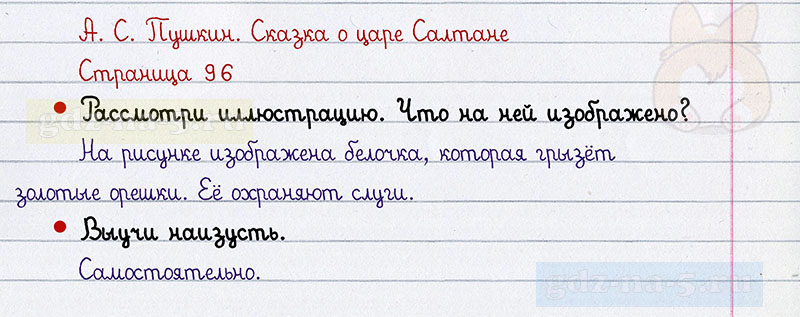 А. С. Пушкин. Сказка о царе Салтане
Страница 96
• Рассмотри иллюстрацию. Что на ней изображено?
На рисунке изображена белочка, которая грызёт
золотые орешки. Её охраняют слуги.
• Выучи наизусть.
Самостоятельно.
gdz-na-5.ru
gdz-na-5.ru